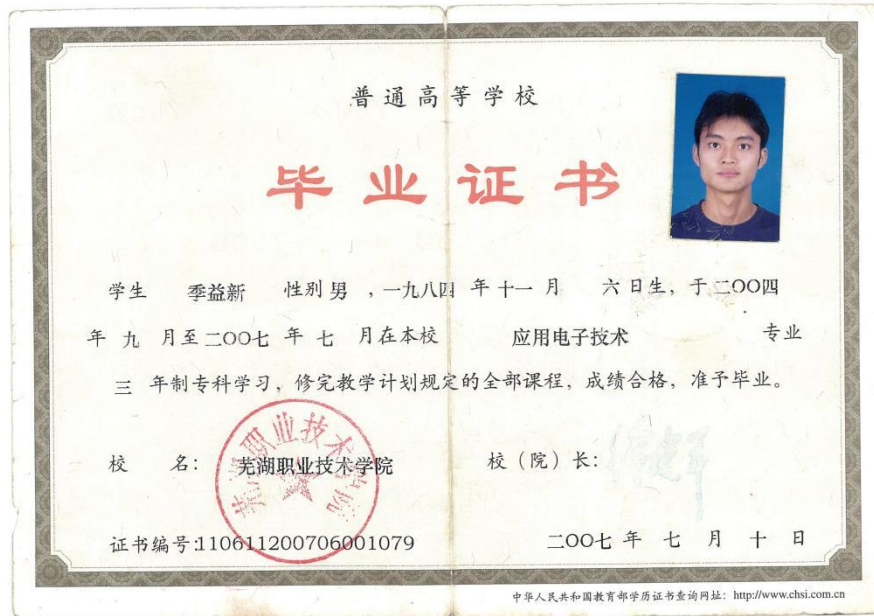 普通高等学校
毕业证书
学生 季益新 性别 男 ，一九八四 年 十一 月 六 日生，于 二OO四
年 九 月至 二OO七 年 七 月在本校 应用电子技术 专业
三 年制专科学习，修完教学计划规定的全部课程，成绩合格，准予毕业。
芜湖职业技术学院
校 名： 芜湖职业技术学院 校（院）长：
证书编号:110611200706001079 二OO七 年 七 月 十 日
中华人民共和国教育部学历证书查询网址：http://www.chsi.com.cn